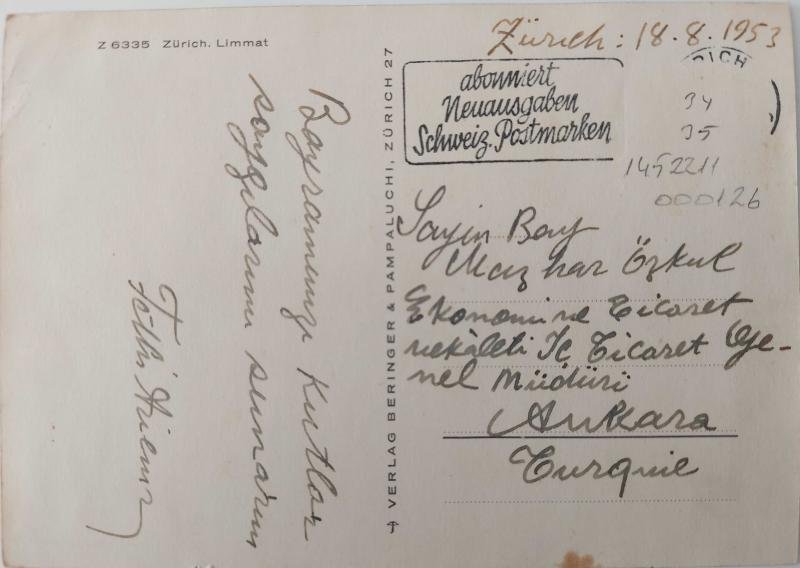 Z 6335 Zürich. Limmat
Zürich: 18.8.1953
RICH
abonniert
Neuausgaben
Schweiz. Postmarken
34
35
1452211
000126
Bayramınızı Kutlar
saygılarımı sunarım
Fethi
VERLAG BERINGER & PAMPALUCHI, ZÜRICH 27
Sayın Bay
Mazhar Özkul
Ekonomi ve Ticaret
vekâleti İç Ticaret Ge-
nel Müdürü
Ankara
Turquie